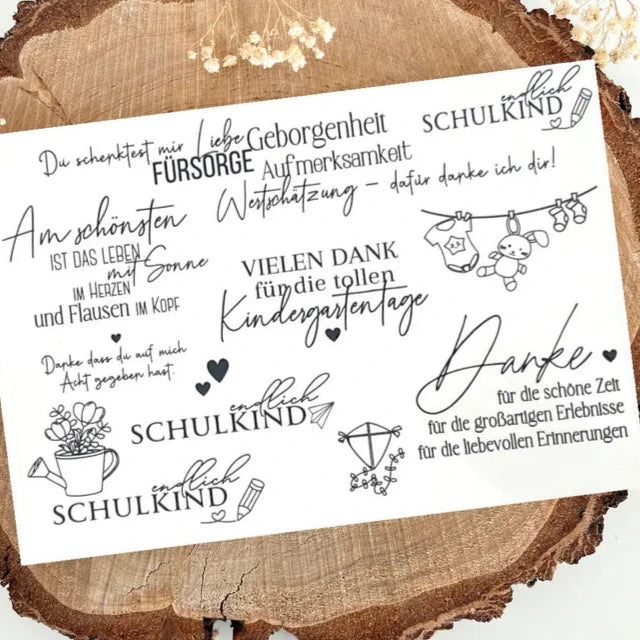 Du schenktest mir Liebe Geborgenheit
FÜRSORGE Aufmerksamkeit
Wertschätzung – dafür danke ich dir!
endlich
SCHULKIND
Am schönsten
IST DAS LEBEN
mit Sonne
IM HERZEN
und Flausen IM KOPF
VIELEN DANK
für die tollen
Kindergartentage
Danke dass du auf mich
Acht gegeben hast.
Danke
für die schöne Zeit
für die großartigen Erlebnisse
für die liebevollen Erinnerungen
endlich
SCHULKIND
endlich
SCHULKIND